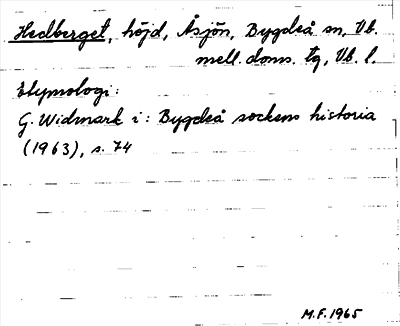 Hedberget, höjd, Åsjön, Bygdeå sn, Vb.
mell. doms. tg, Vb. l.
Etymologi:
G. Widmark i: Bygdeå sockens historia
(1963), s. 74
M.F. 1965